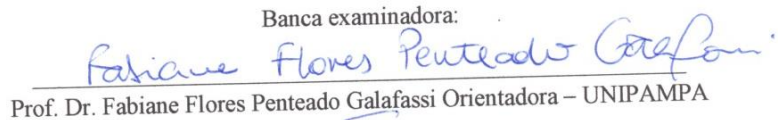 Banca examinadora:
Fabiane Flores Penteado Galafassi
Prof. Dr. Fabiane Flores Penteado Galafassi Orientadora – UNIPAMPA